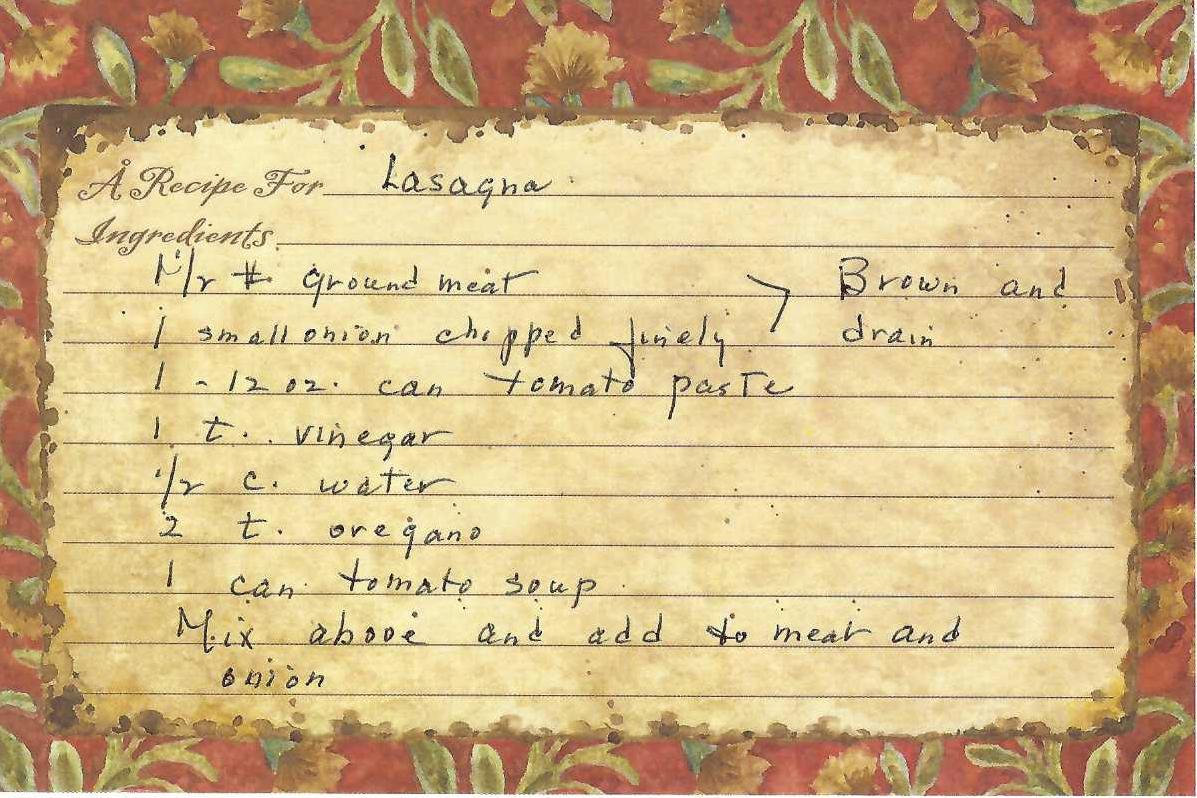 A Recipe For Lasagna
Ingredients
1 1/2 # ground meat > Brown and
1 small onion chopped finely drain
1 - 12 oz. can tomato paste
1 t. vinegar
1/2 c. water
2 t. oregano
1 can tomato soup
Mix above and add to meat and
onion